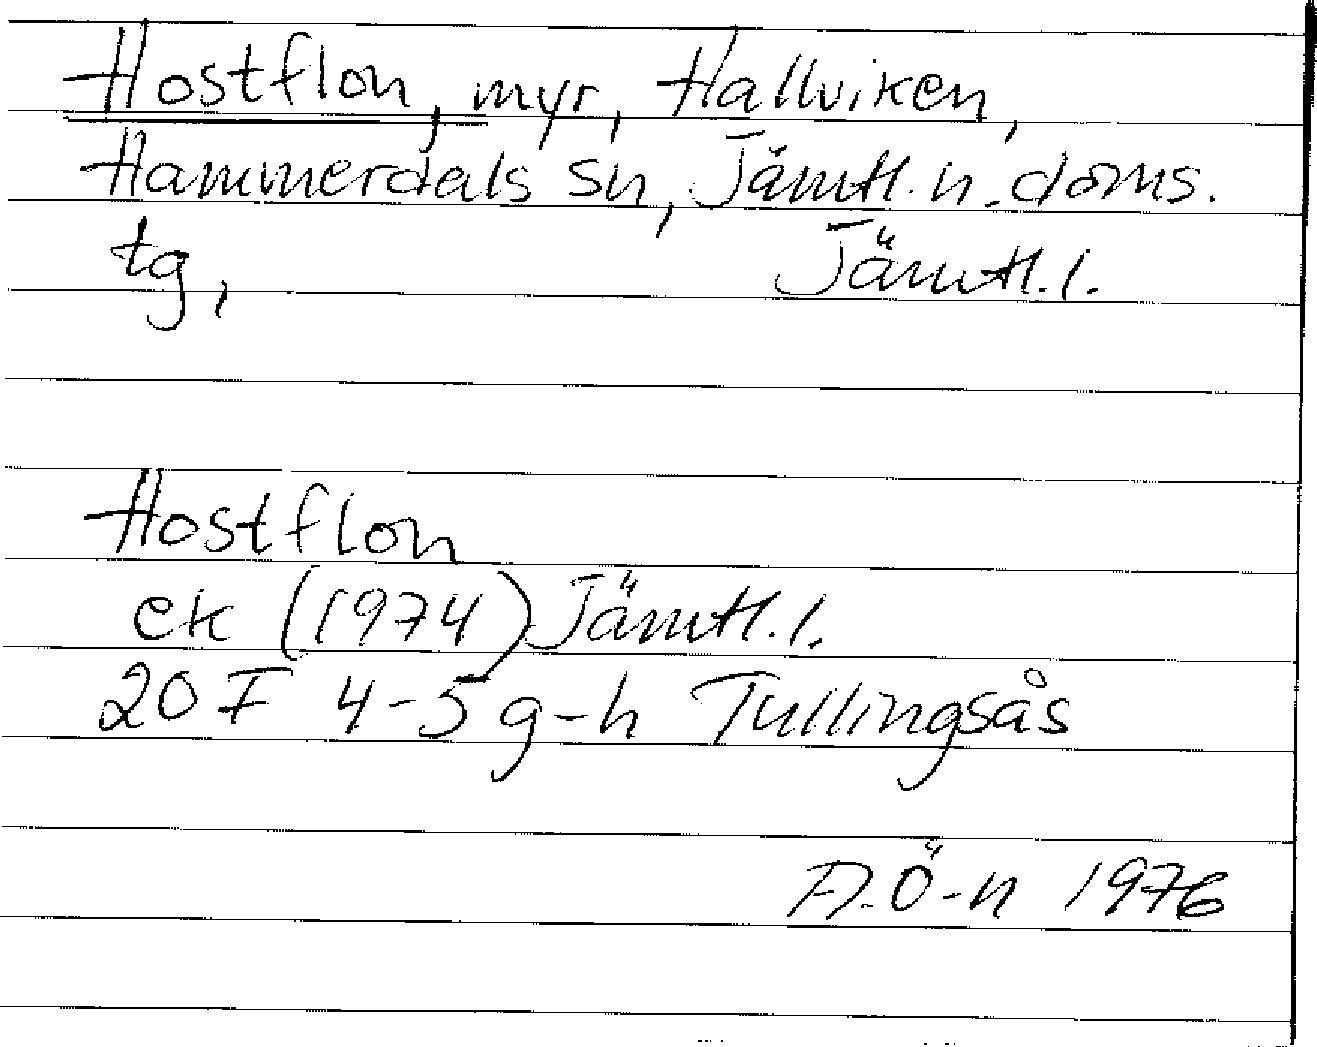 Hostflon, myr, Hallviken,
Hammerdals sn, Jämtl. n. doms.
tg, Jämtl. l.
Hostflon
ek (1974) Jämtl. l.
20 F 4-5 g-h Tullingsås
A.Ö-n 1976